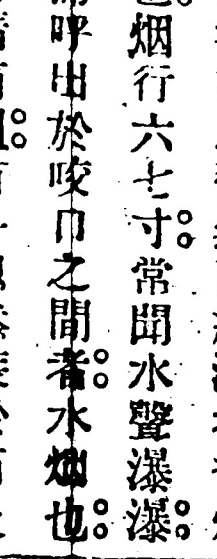 烟行六七寸常聞水聲瀑瀑
呼出於咬巾之間者水烟也